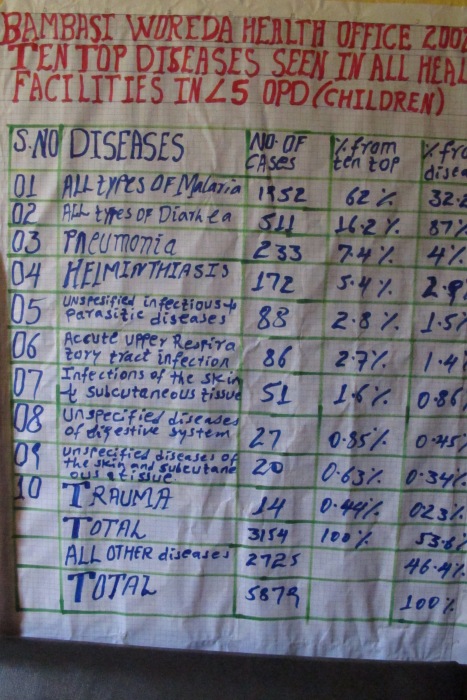 BAMBASI WOREDA HEALTH OFFICE 200
TEN TOP DISEASES SEEN IN ALL HEAL
FACILITIES IN <5 OPD (CHILDREN)
S.NO DISEASES NO. OF CASES % from ten top % fro disea
01 ALL types OF Malaria 1952 62% 32.2
02 ALL types OF Diarhea 511 16.2% 87%
03 Pneumonia 233 7.4% 4%
04 HELMINTHIASIS 172 5.4% 2.9
05 unspesified infectious & parasitic diseases 88 2.8% 1.5%
06 Accute upper Respira tory tract infection 86 2.7% 1.4
07 Infections of the skin & subcutaneous tissue 51 1.6% 0.86
08 Unspecified diseases of digestive system 27 0.85% 0.45
09 unspecified diseases of the skin and subcutane ous tissue 20 0.63% 0.34%
10 TRAUMA 14 0.44% 023%
TOTAL 3154 100% 53.6%
ALL OTHER diseases 2725 46.4%
TOTAL 5879 100%